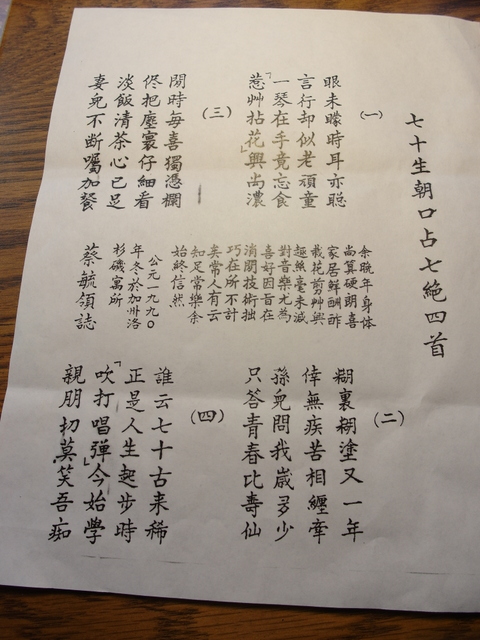 七十生朝口占七絕四首
(一)
眼未矇時耳亦聰
言行却似老頑童
一琴在手竟忘食
「惹艸拈花」興尚濃
(二)
糊裏糊塗又一年
倖無疾苦相纏牽
孫兒問我歲多少
只答青春比壽仙
(三)
閒時每喜獨憑欄
侭把塵寰仔細看
淡飯清茶心已足
妻兒不斷囑加餐
(四)
誰云七十古来稀
正是人生起步時
「吹打唱彈」今始學
親朋切莫笑吾痴
余晚年身体
尚算硬朗喜
家居鮮酬酢
栽花剪艸興
趣絲毫未減
對音樂尤為
喜好因旨在
消閒技術拙
巧在所不計
矣常人有云
知足常樂余
始終信然
公元一九九〇
年冬於加州洛
杉磯寓所
蔡毓領誌